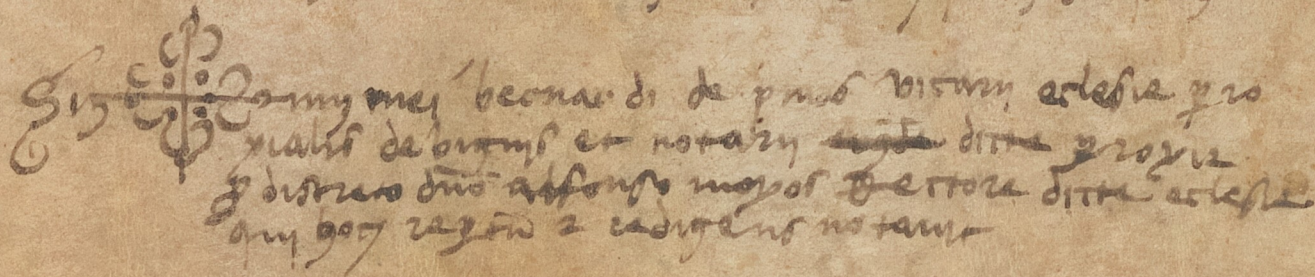 Sig num mei bernardi de pinos vicarii eclesie parro
xialis de bignis et notarii dicte parroxie
per discreto dno alfonso moyos Rectore dicte eclesie
qui hoc recptu e redigens notavit